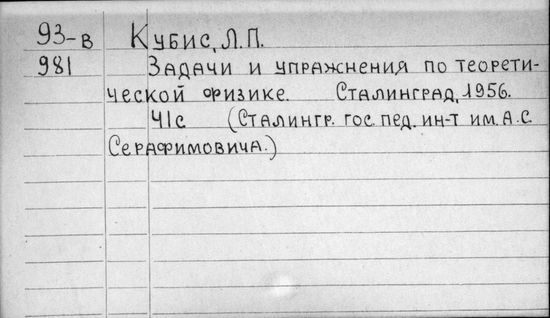 93-в Кубис, Л.П.
981 Задачи и упражнения по теорети-
ческой физике. Сталинград, 1956.
41с (Сталингр. гос. пед. ин-т им. А.С.
Серафимовича.)